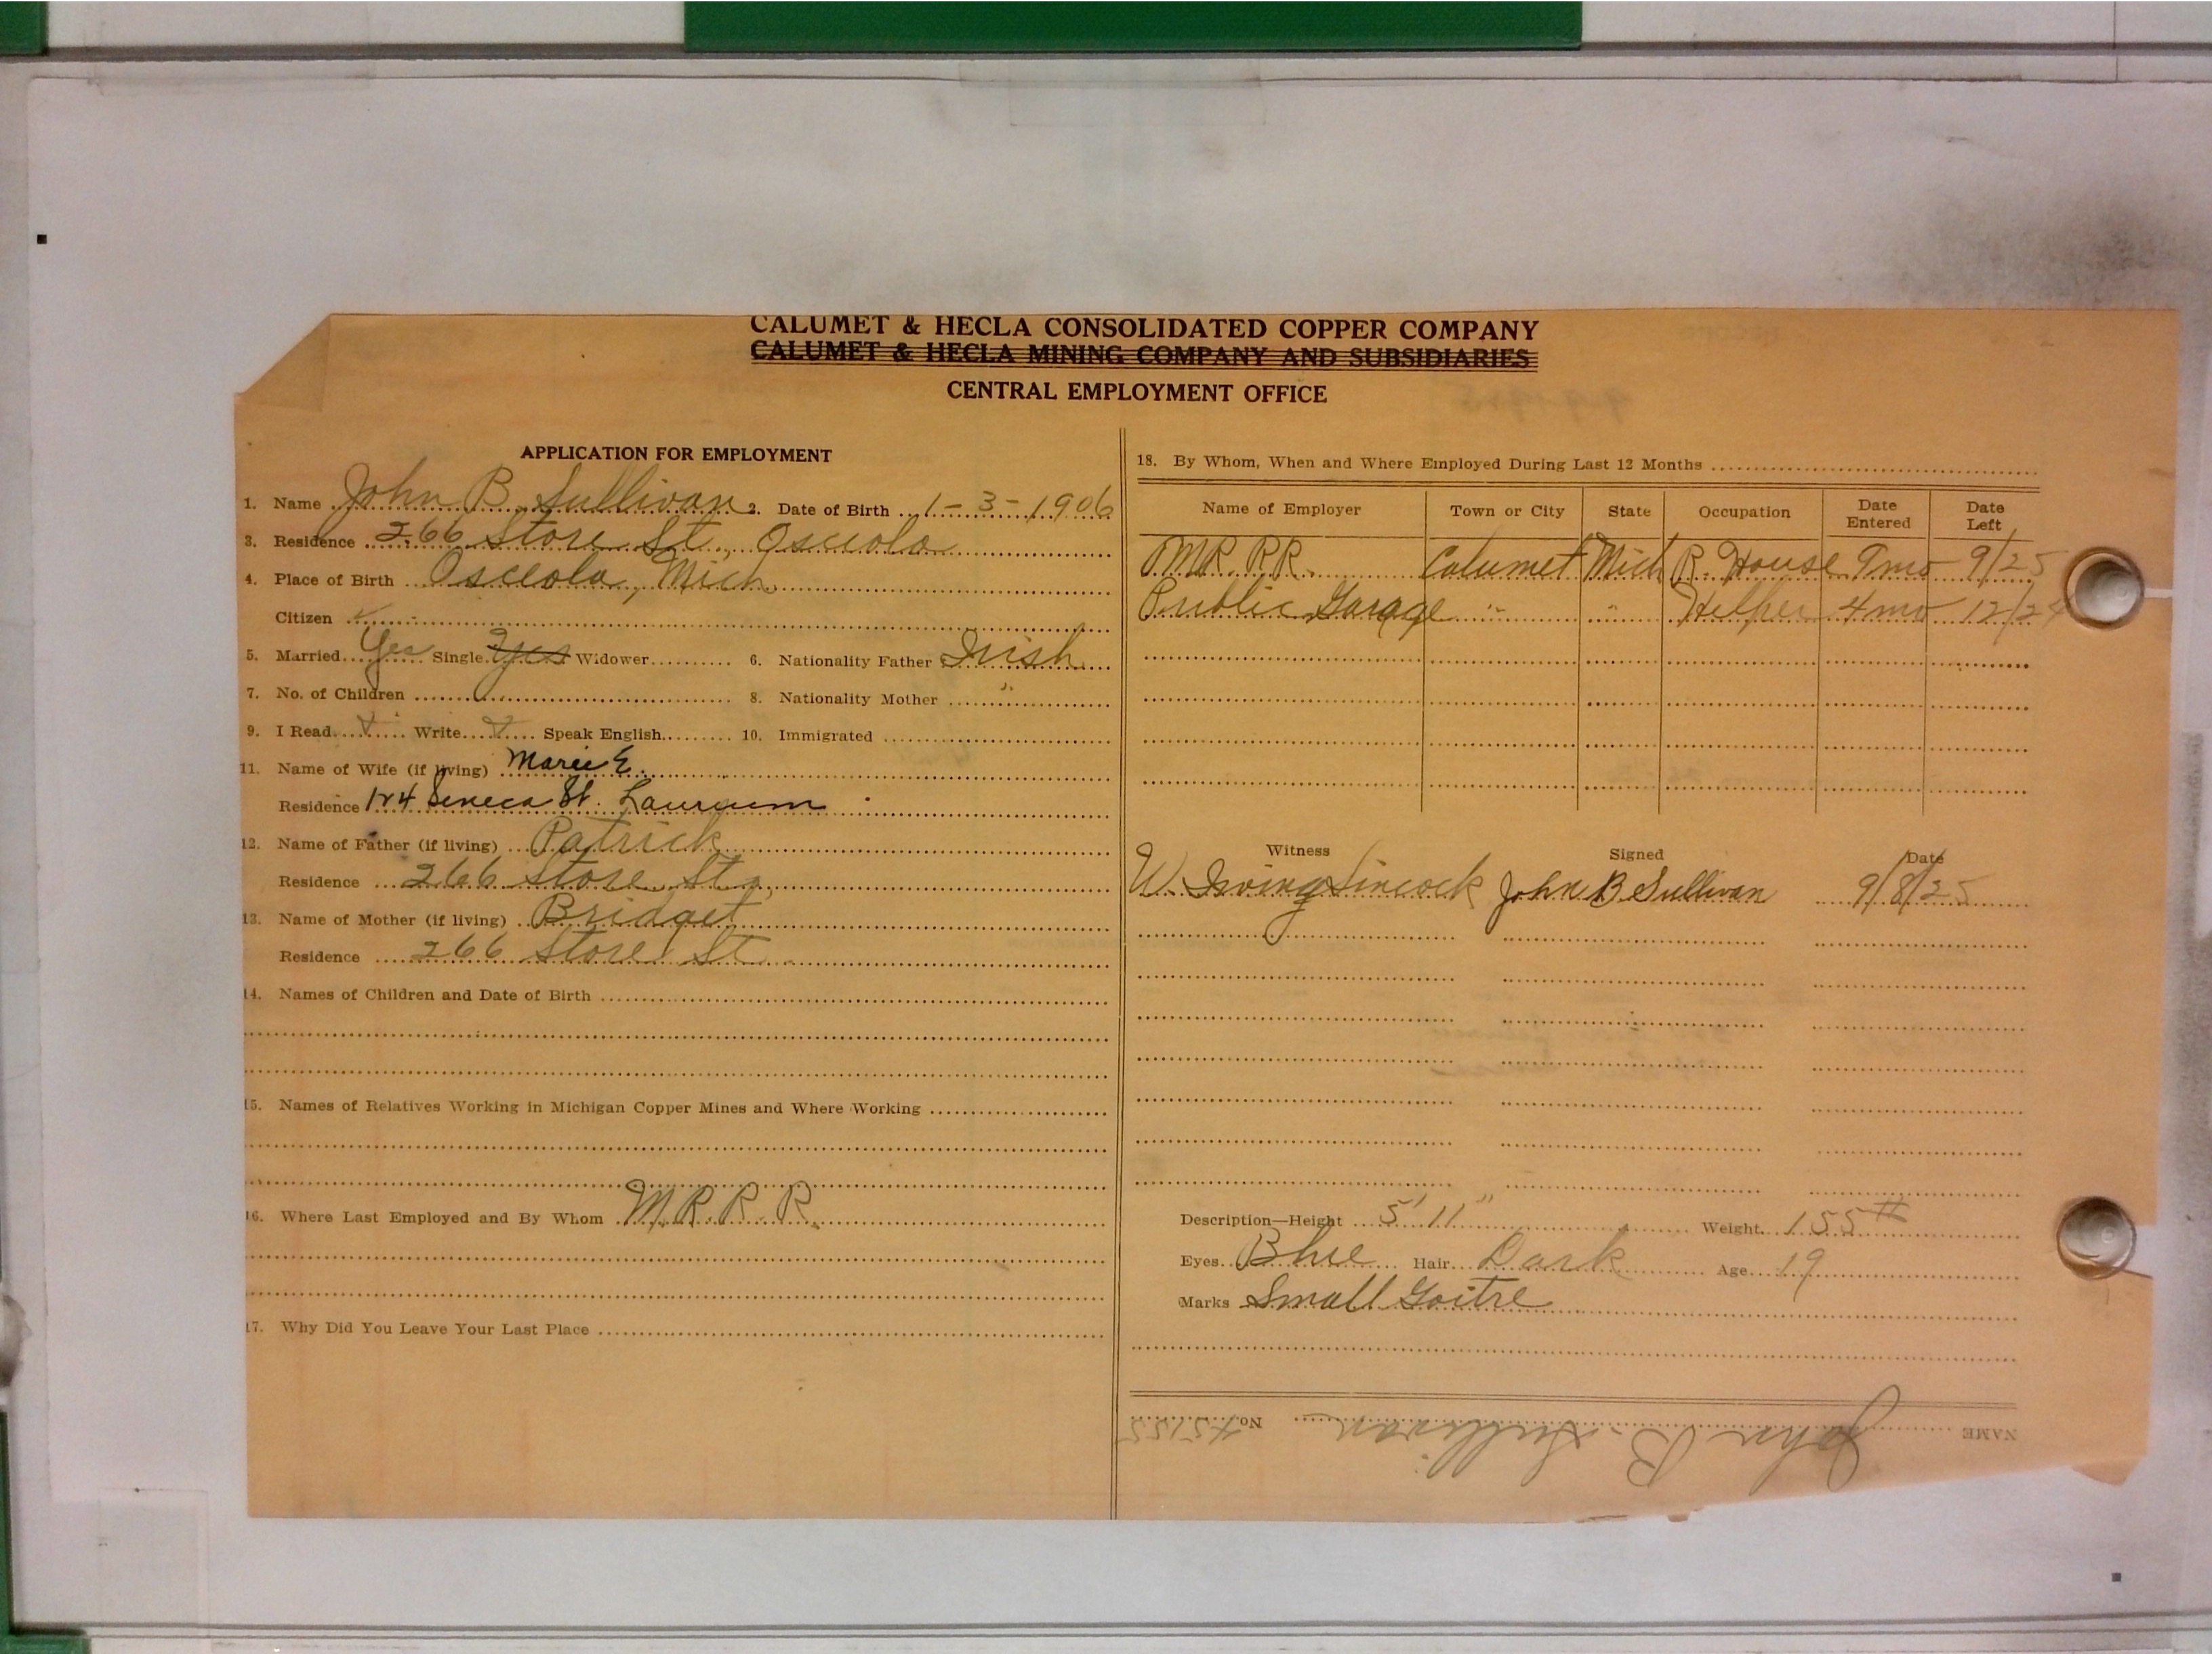 CALUMET & HECLA CONSOLIDATED COPPER COMPANY
CALUMET & HECLA MINING COMPANY AND SUBSIDIARIES
CENTRAL EMPLOYMENT OFFICE
APPLICATION FOR EMPLOYMENT
1. Name John B. Sullivan 2. Date of Birth 1-3-1906
3. Residence 266 Store St., Osceola
4. Place of Birth Osceola, Mich.
Citizen ✓
5. Married Yes Single Yes Widower 6. Nationality Father Irish
7. No. of Children 8. Nationality Mother "
9. I Read ✓ Write ✓ Speak English 10. Immigrated
11. Name of Wife (if living) Marie E.
Residence 124 Seneca St. Laurium
12. Name of Father (if living) Patrick
Residence 266 Store St.,
13. Name of Mother (if living) Bridget
Residence 266 Store St
14. Names of Children and Date of Birth
15. Names of Relatives Working in Michigan Copper Mines and Where Working
16. Where Last Employed and By Whom M.R.R.R.
17. Why Did You Leave Your Last Place
18. By Whom, When and Where Employed During Last 12 Months
Name of Employer Town or City State Occupation Date Entered Date Left
M.R. R.R. Calumet Mich R. House 9 mo 9/25
Public Garage " " Helper 4 mo 12/24
Witness Signed Date
W. Irving Sincock John B Sullivan 9/8/25
Description—Height 5' 11" Weight 155#
Eyes Blue Hair Dark Age 19
Marks Small Goitre
NAME John B. Sullivan No. 45155